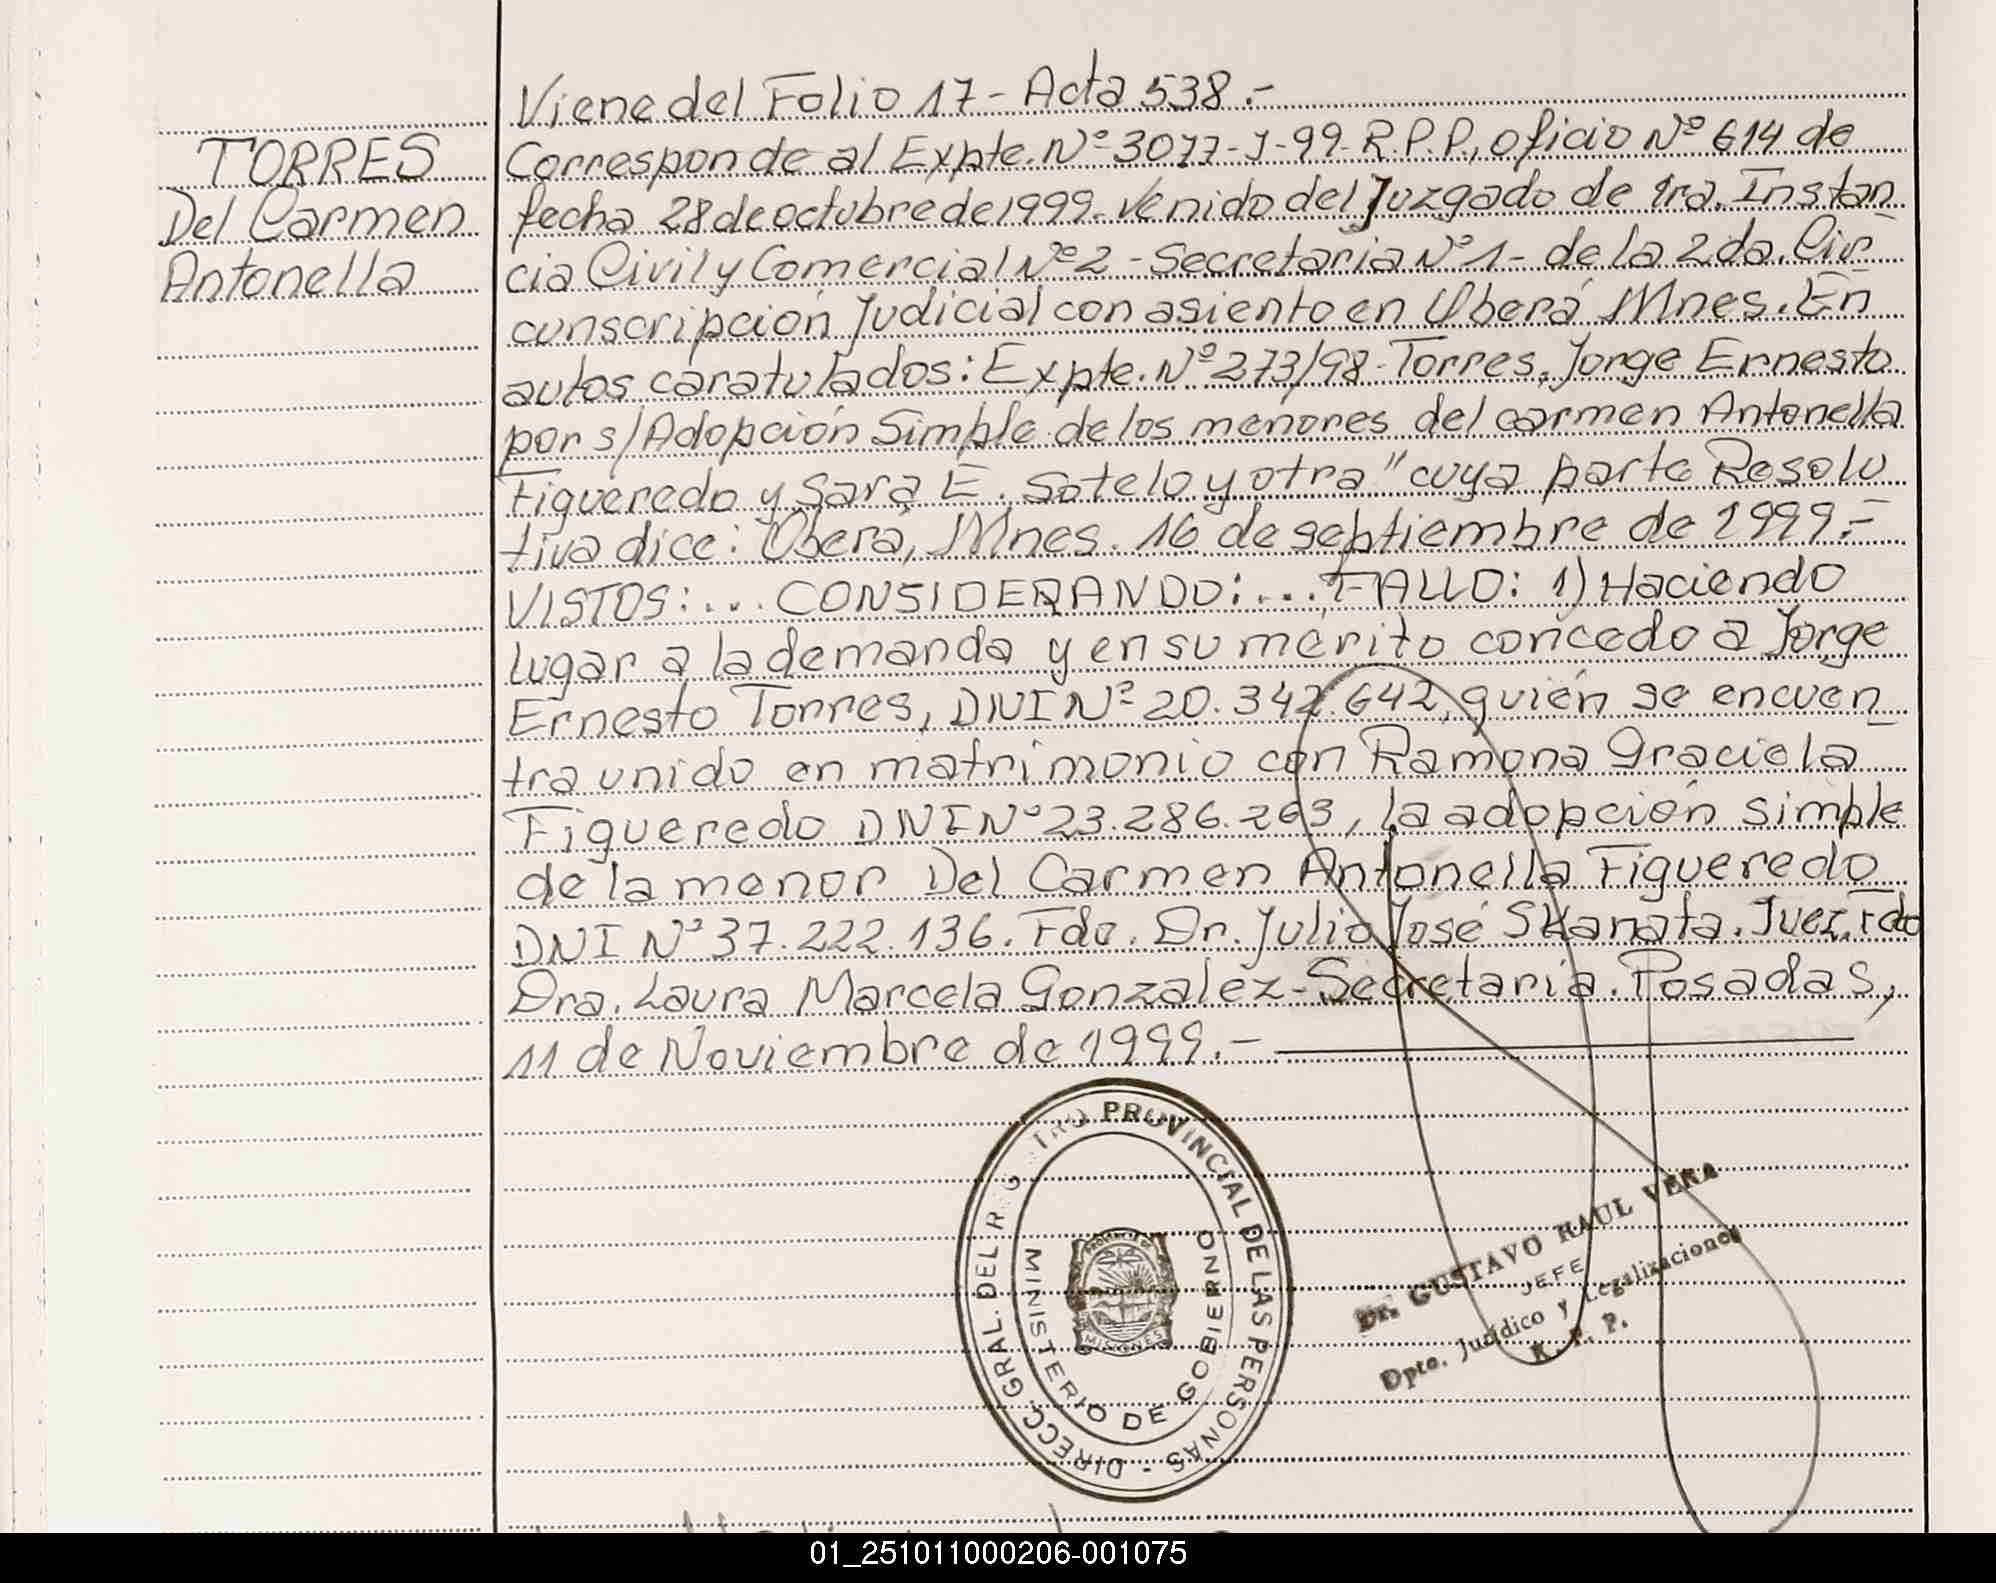 TORRES
Del Carmen
Antonella
Viene del Folio 17 - Acta 538.-
Corresponde al Expte. Nº 3077-J-99-R.P.P., oficio Nº 614 de
fecha 28 de octubre de 1999. Venido del Juzgado de 1ra. Instan
cia Civil y Comercial Nº 2 - Secretaria Nº 1 - de la 2da. Cir
cunscripción Judicial con asiento en Oberá Mnes. En
autos caratulados: Expte. Nº 273/98 - Torres, Jorge Ernesto
por s/Adopción Simple de los menores del carmen Antonella
Figueredo y Sara E. Sotelo y otra" cuya parte Resolu
tiva dice: Oberá, Mnes. 16 de septiembre de 1999.-
VISTOS:... CONSIDERANDO:... FALLO: 1) Haciendo
lugar a la demanda y en su mérito concedo a Jorge
Ernesto Torres, DNI Nº 20.342.642, quién se encuen
tra unido en matrimonio con Ramona Graciela
Figueredo DNI Nº 23.286.263, la adopción simple
de la menor Del Carmen Antonella Figueredo
DNI Nº 37.222.136. Fdo. Dr. Julio José SKanata. Juez. Fdo
Dra. Laura Marcela Gonzalez - Secretaria. Posadas,
11 de Noviembre de 1999.-
DIRECC. GRAL. DEL PROVINCIAL DE LAS PERSONAS -
MINISTERIO DE GOBIERNO
MISIONES
Dr. GUSTAVO RAUL VERA
JEFE
Dpto. Jurídico y Legalizaciones
R. P. P.
01_251011000206-001075